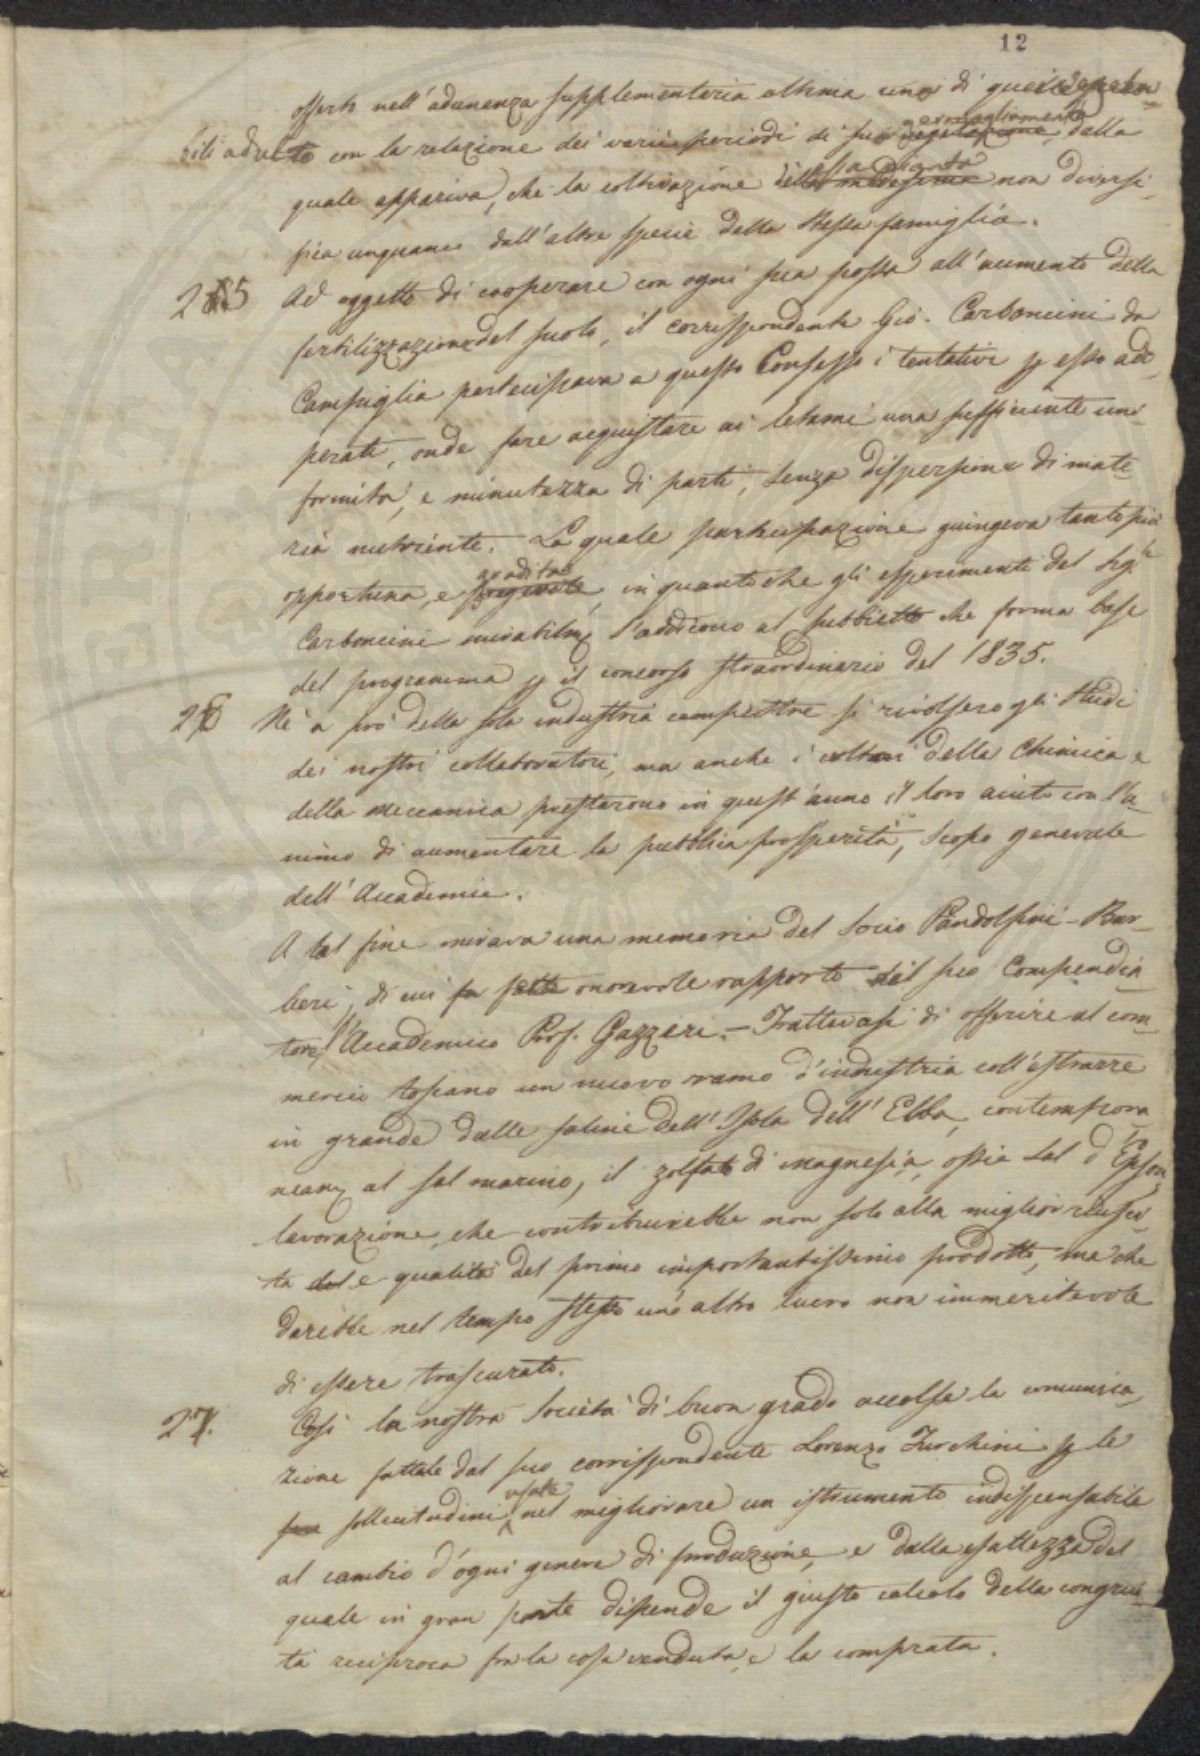 12
offerto nell'adunanza supplementaria ultima uno di quei vegeta-
bili adulto con la relazione dei varii periodi di suo vegetazione germogliamento dalla
quale appariva, che la coltivazione della medesima essa pianta non diversi-
fica unquanco dall'altre specie della stessa famiglia.
25 Ad oggetto di cooperare con ogni sua possa all'aumento della
fertilizzazione del suolo, il corrispondente Gio. Carboncini da
Campiglia partecipava a questo Consesso i tentativi p esso ado-
perati, onde fare acquistare ai letami una sufficiente uni-
formità, e minutezza di parti, senza dispersione di mate-
ria nutriente. La quale partecipazione giungeva tanto più
opportuna, e gradita, in quanto che gli esperimenti del Sigr
Carboncini mirabilme s'addicono al subbietto che forma base
del programma p il concorso straordinario del 1835.
26 Nè a prò della sola industria campestre si rivolsero gli studi
dei nostri collaboratori, ma anche i cultori della Chimica e
della Meccanica prestarono in quest'anno il loro aiuto con l'a-
nimo di aumentare la pubblica prosperità, scopo generale
dell'Accademia.
A tal fine mirava una memoria del Socio Pandolfini-Bar-
beri, di cui fu fatto onorevole rapporto dal suo Compendia
tore l'Accademico Prof. Gazzeri. - Trattavasi di offerire al com-
mercio toscano un nuovo ramo d'industria coll'estrarre
in grande dalle saline dell'Isola dell'Elba, contempora
neame al sal marino, il zolfato di magnesia, ossia Sal d'Epsom,
lavorazione, che contribuirebbe non solo alla miglior riusci-
ta del e qualità del primo importantissimo prodotto, ma che
darebbe nel tempo stesso un altro lucro non immeritevole
di essere trascurato.
27. Così la nostra Società di buon grado accolse la comunica-
zione fattale dal suo corrispondente Lorenzo Turchini p le
sue sollecitudini usate nel migliorare un istrumento indispensabile
al cambio d'ogni genere di produzione, e dalla esattezza del
quale in gran parte dipende il giusto calcolo della congrui-
tà reciproca fra la cosa venduta, e la comprata.